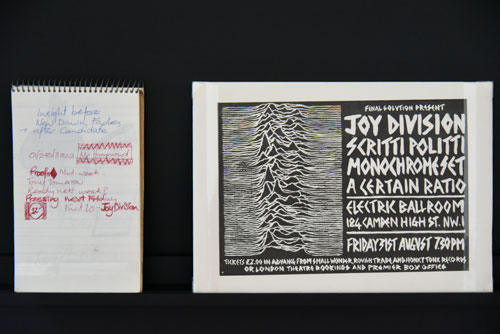 Insight before
New Dawn Fades
→ after Candidate
Mr Hammond
Proofs Mid-week
Tony Tomorrow
Ready next week?
Pressing next Friday
First 10
Joy Division
FINAL SOLUTION PRESENT
JOY DIVISION
SCRITTI POLITTI
MONOCHROME SET
A CERTAIN RATIO
ELECTRIC BALLROOM
184 CAMDEN HIGH ST. N.W.1
FRIDAY 31ST AUGUST 7.30PM
TICKETS £2.00 IN ADVANCE FROM SMALL WONDER, ROUGH TRADE, AND HONKY TONK RECORDS
OR LONDON THEATRE BOOKINGS AND PREMIER BOX OFFICE